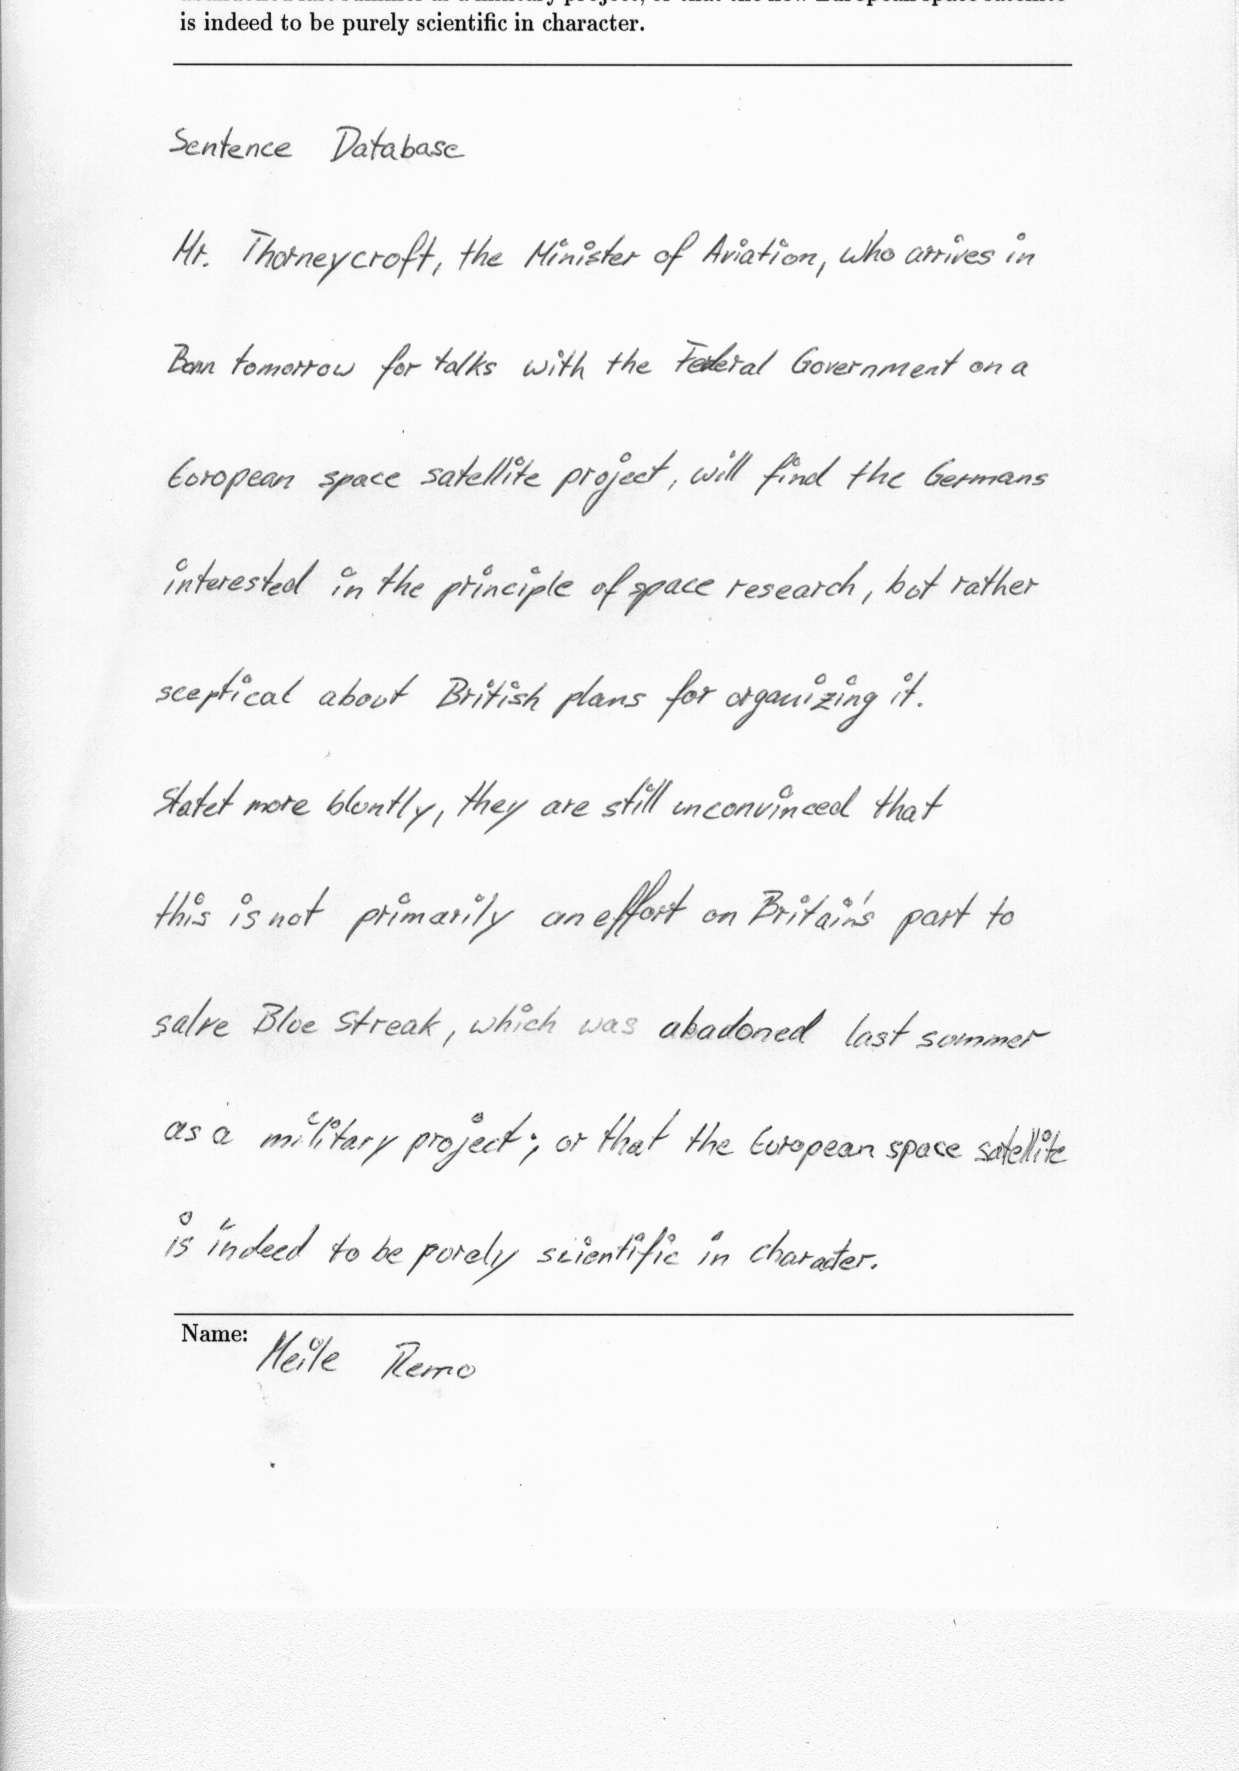 is indeed to be purely scientific in character.
Sentence Database
Mr. Thorneycroft, the Minister of Aviation, who arrives in
Bonn tomorrow for talks with the Federal Government on a
European space satellite project, will find the Germans
interested in the principle of space research, but rather
sceptical about British plans for organizing it.
Statet more bluntly, they are still unconvinced that
this is not primarily an effort on Britain's part to
salve Blue Streak, which was abadoned last summer
as a military project; or that the European space satellite
is indeed to be purely scientific in character.
Name: Meile Remo